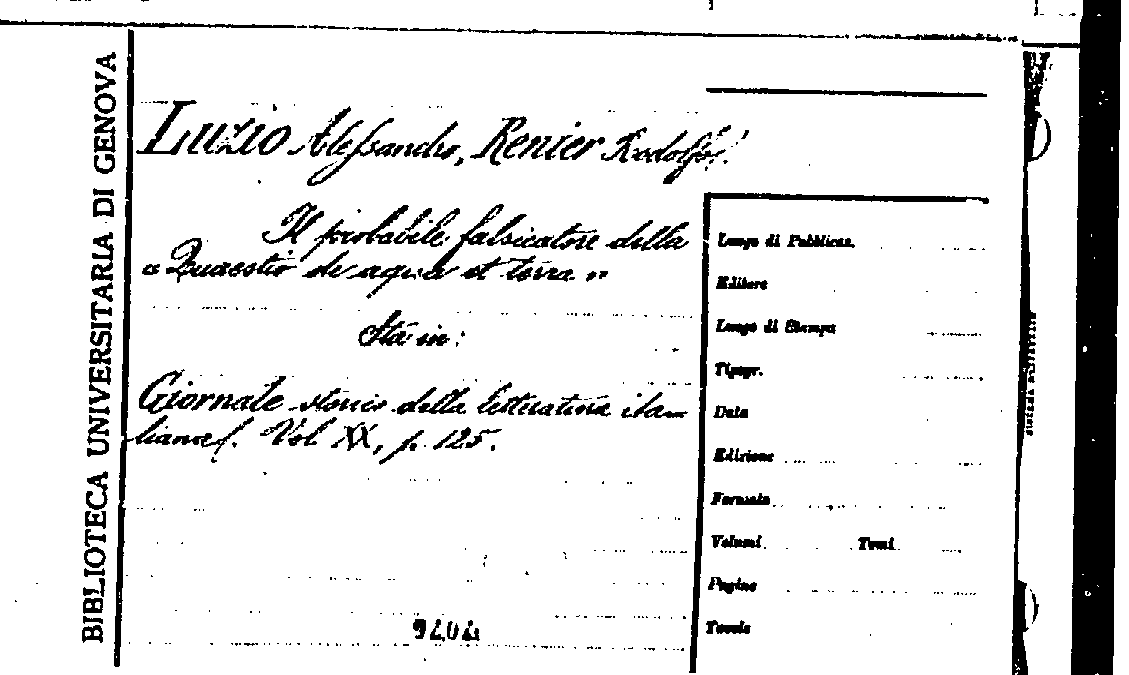 BIBLIOTECA UNIVERSITARIA DI GENOVA
Luzio Alessandro, Renier Rodolfo.
Il probabile falsicatore della
« Quaestio de aqua et terra »
Sta in:
Giornale storico della letteratura ita-
liana. Vol XX, p. 125.
Luogo di Pubblicaz.
Editore
Luogo di Stampa
Tipogr.
Data
Edizione
Formato
Volumi Tomi
Pagine
Tavole